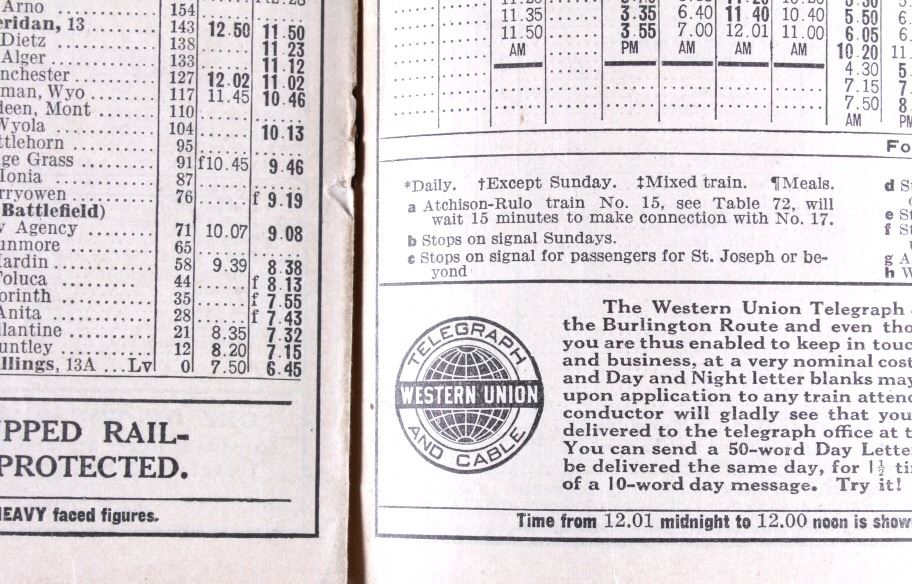 Arno ........ 154
eridan, 13 143 12.50 11.50
Dietz ........ 138 ...... 11.23
Alger ........ 133 ...... 11.12
nchester ........ 127 12.02 11.02
man, Wyo ........ 117 11.45 10.46
deen, Mont ........ 110
Wyola ........ 104 ...... 10.13
ttlehorn ........ 95
ge Grass ........ 91 f10.45 9.46
Ionia ........ 87
rryowen ........ 76 ...... f 9.19
Battlefield)
Agency ........ 71 10.07 9.08
unmore ........ 65
ardin ........ 58 9.39 8.38
oluca ........ 44 ...... f 8.13
orinth ........ 35 ...... f 7.55
Anita ........ 28 ...... f 7.43
llantine ........ 21 8.35 7.32
untley ........ 12 8.20 7.15
llings, 13A ...Lv 0 7.50 6.45
PPED RAIL-
PROTECTED.
HEAVY faced figures.
11.35 3.35 6.40 11 40 10.40 5.50
11.50 3.55 7.00 12.01 11.00 6.05
AM PM AM AM AM 10.20
4.30
7.15
7.50
AM PM
Fo
*Daily. †Except Sunday. ‡Mixed train. ¶Meals.
a Atchison-Rulo train No. 15, see Table 72, will
wait 15 minutes to make connection with No. 17.
b Stops on signal Sundays.
c Stops on signal for passengers for St. Joseph or be-
yond
d S
e S
f S
g A
h W
TELEGRAPH
WESTERN UNION
AND CABLE
The Western Union Telegraph
the Burlington Route and even tho
you are thus enabled to keep in touc
and business, at a very nominal cost
and Day and Night letter blanks may
upon application to any train attend
conductor will gladly see that you
delivered to the telegraph office at t
You can send a 50-word Day Lette
be delivered the same day, for 1½ ti
of a 10-word day message. Try it!
Time from 12.01 midnight to 12.00 noon is show